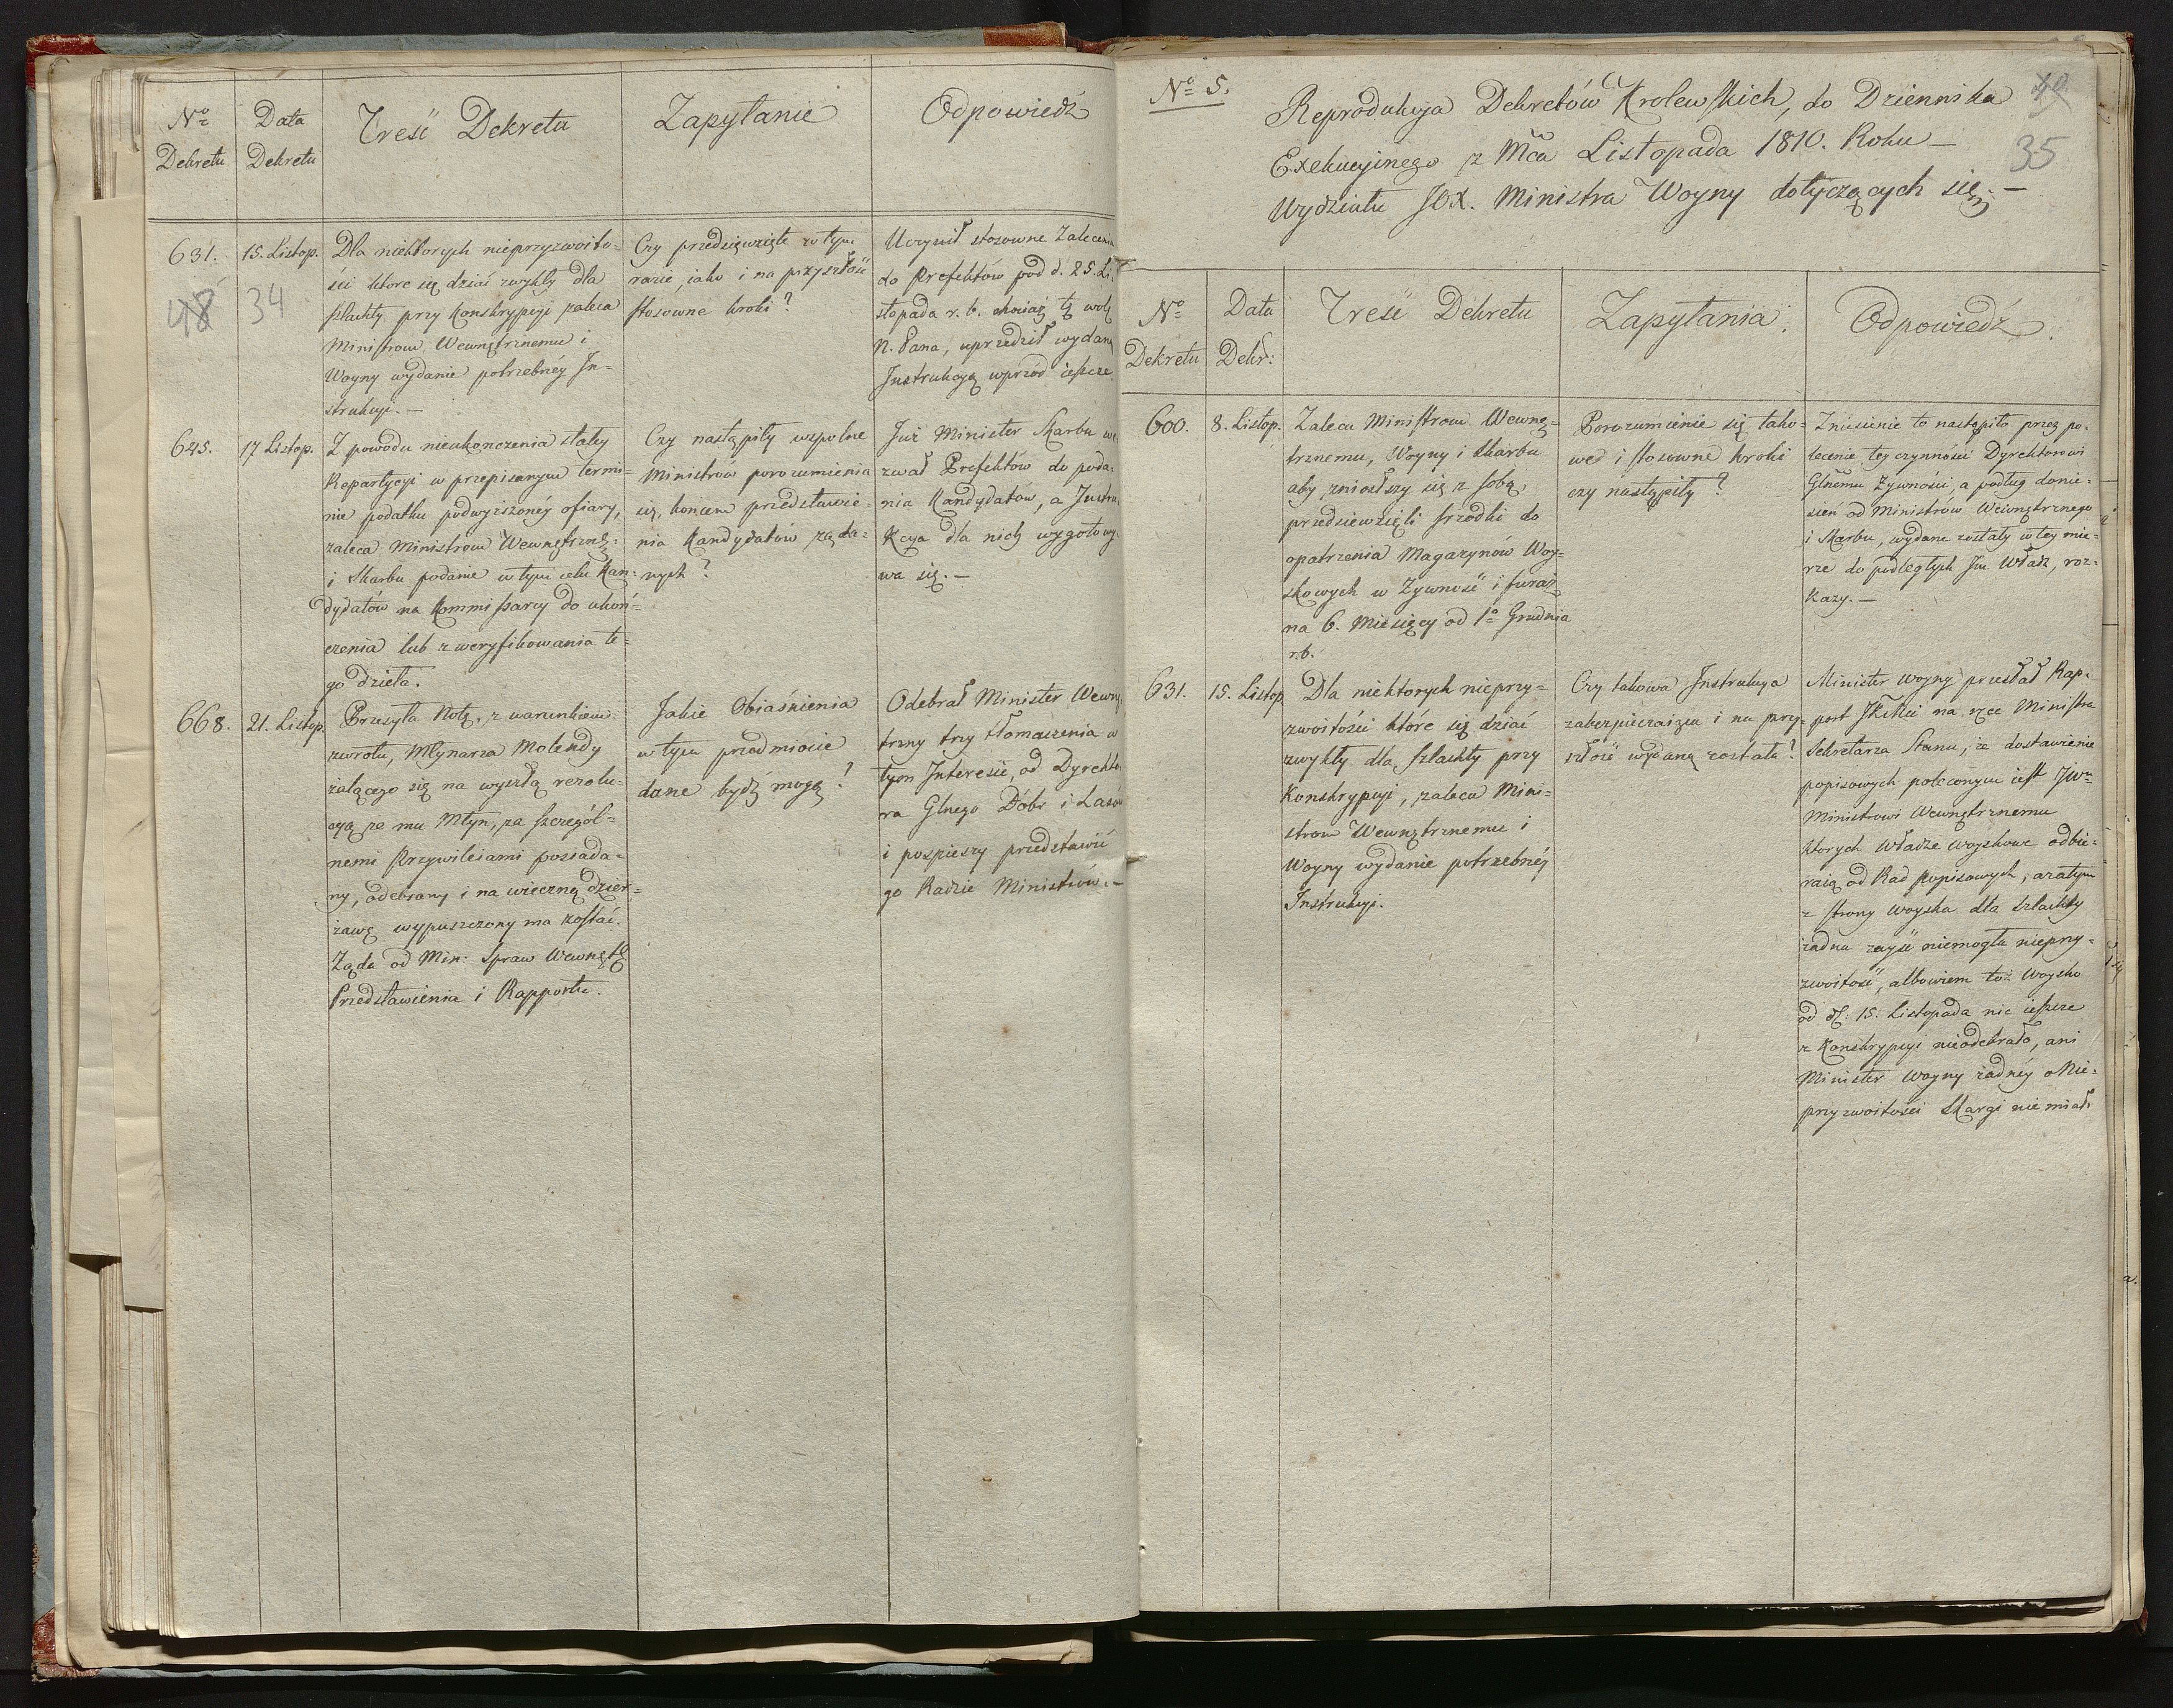 Nº Dekretu
Data Dekretu
Treść Dekretu
Zapytanie
Odpowiedź
631.
48 34
15. Listop.
Dla niektorych nieprzyzwoito=
ści ktore się dziać zwykły dla
szlachty przy konskrypcyi zaleca
Ministrom Wewnętrznemu i
Woyny wydanie potrzebnéy In=
strukcyi. —
Czy przedsięwzięte w tym
razie, iako i na przyszłość
stosowne kroki?
Uczynił stosowne Zalecenia
do Prefektów pod d. 25. Li=
stopada r. b. chociaż tę wolą
N. Pana, uprzedził wydaną
Instrukcyą wprzod ieszcze
645.
17 Listop.
Z powodu nieukonczenia stałey
Repartycyi w przepisanym termi=
nie podatku podwyższonéy ofiary,
zaleca Ministrom Wewnętrzne:
i Skarbu podanie w tym celu Kan=
dydatów na Kommissarzy do ukoń=
czenia lub zweryfikowania te=
go dzieła.
Czy nastąpiły wspolne
Ministrów porozumienia
się, koncem przedstawie=
nia Kandydatów żąda=
nych?
Już Minister Skarbu we
zwał Prefektów do poda=
nia Kandydatów, a Instru
kcya dla nich wygotowy
wa się. —
668.
21. Listop.
Przesyła Notę, z warunkiem
zwrotu, Młynarza Molendy
żalącego się na wyszłą rezolu=
cyą że mu Młyn, za szczegól=
nemi Przywilejami posiada=
ny, odebrany i na wieczną dzier=
żawę wypuszczony ma zostać.
Żąda od Min: Spraw Wewnętr
Przedstawienia i Rapportu.
Jakie Obiaśnienia
w tym przedmiocie
dane bydź mogą?
Odebrał Minister Wewnę
trzny trzy tłomaczenia w
tym Interesie, od Dyrekto
ra Głnego Dóbr i Lasów
i pospieszy przedstawić
go Radzie Ministrów. —
Nº 5.
Reprodukcya Dekretów Krolewskich, do Dziennika
Exekucyjnego z Mca Listopada 1810. Roku —
Wydziału JOX. Ministra Woyny dotyczących się. —
35
Nº Dekretu
Data Dekr:
Treść Dekretu
Zapytania.
Odpowiedź.
600.
8. Listop.
Zaleca Ministrom Wewnę=
trznemu, Woyny i Skarbu
aby zniosłszy się z sobą,
przedsiewzięli srzodki do
opatrzenia Magazynów Woy=
skowych w Żywność i furaż
na 6. Miesięcy od 1º Grudnia
r. b.
Porozumienie się tako=
we i stosowne kroki
czy nastąpiły?
Zniesienie to nastąpiło przez po=
lecenie tey czynności Dyrektorowi
Głnemu Żywności, a podług donie=
sień od Ministrów Wewnętrznego
i Skarbu, wydane zostały w tey mie=
rze do podległych Im Władz, roz=
kazy. —
631.
15. Listop
Dla niektorych nieprzy=
zwoitości które się dziać
zwykły dla szlachty przy
Konskrypcyi, zaleca Mini=
strom Wewnętrznemu i
Woyny wydanie potrzebnéy
Instrukcyi.
Czy takowa Instrukcya
zabezpieczaiąca i na przy=
szłość wydaną została?
Minister Woyny przesłał Rap=
port JKMci na ręce Ministra
Sekretarza Stanu, że dostawienie
popisowych poleconym iest JWu
Ministrowi Wewnętrznemu
ktorych Władze woyskowe odbie=
raią od Rad popisowych, a zatym
z strony woyska dla szlachty
żadna zayść niemogła nieprzy=
zwoitość, albowiem toż Woysko
od d. 15. Listopada nic ieszcze
z Konskrypcyi nieodebrało, ani
Minister Woyny żadnéy o Nie=
przyzwoitości Skargi nie miał.